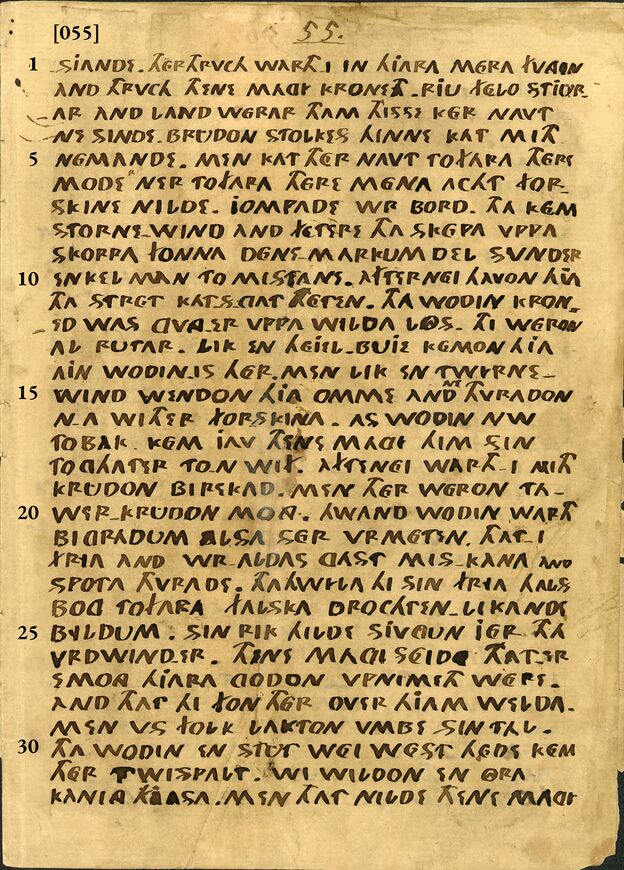 SIANDE. THERTHRVCH WARTH-I IN HIARA MERA FVAIN
AND THRVCH THENE MAGI KRONETH. RIU FELO STIUR-
AR AND LAND WERAR THAM THISSE KER NAVT
NE SINDE. BRUDON STOLKES HINNE KAT MITH
NEMANDE. MEN KAT THER NAVT TO FARA THERE
MODER NER TO FARA THERE MENA ACHT FOR-
SKINE NILDE. IOMPADE WR BORD. THA KEM
STORNE-WIND AND FETERE THA SKEPA VPPA
SKORRA FONNA DENE-MARKUM DEL SVNDER
ENKEL MAN TO MISTANE. AFTERNEI HAVON HIA
THA STRET KATS-GAT HETEN. THA WODIN KRON-
ED WAS GVNG-ER VPPA WILDA LOS. THI WERON
AL RUTAR. LIK EN HEIEL-BUIE KEMON HIA
AIN WODIN-IS HER. MEN LIK EN TWIRNE-
WIND WENDON HIA OMME AND NE THVRADON
N-A WITHER FORSKINA. AS WODIN NW
TO BAK KEM IAV THENE MAGI HIM SIN
TOGHATER TO-N WIF. AFTENEI WARTH-I MITH
KRUDON BIREKAD. MEN THER WERON TA-
WER-KRUDON MONG. HWAND WODIN WARTH
BI GRADUM ALSA SER VRMETEN. THAT-I
FRIA AND WR-ALDAS GAST MIS-KANA AND
SPOTA THVRADE. THAHWILA HI SIN FRIA HALS
BOG TO FARA FALSKA DROCHTEN-LIKANDE
BYLDUM. SIN RIK HILDE SIVGUN IER THA
VRDWIND-ER. THENE MAGI SEIDE THAT-ER
EMONG HIARA GODON VPNIMETH WERE.
AND THAT HI FON THER OVER HIAM WELDA.
MEN VS FOLK LAKTON VMBE SIN TAL.
THA WODIN EN STUT WEI WEST HEDE KEM
THER TWISPALT. WI WILDON EN ORA
KANING KIASA. MEN THAT NILDE THENE MAGI